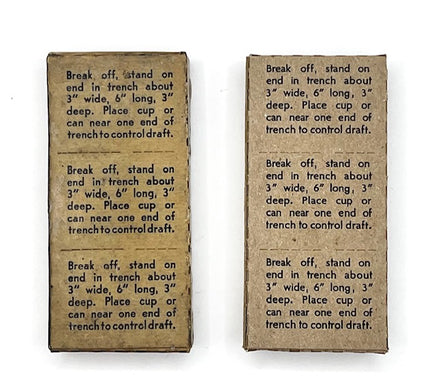 Break off, stand on
end in trench about
3" wide, 6" long, 3"
deep. Place cup or
can near one end of
trench to control draft.
Break off, stand on
end in trench about
3" wide, 6" long, 3"
deep. Place cup or
can near one end of
trench to control draft.
Break off, stand on
end in trench about
3" wide, 6" long, 3"
deep. Place cup or
can near one end of
trench to control draft.
Break off, stand on
end in trench about
3" wide, 6" long, 3"
deep. Place cup or
can near one end of
trench to control draft.
Break off, stand on
end in trench about
3" wide, 6" long, 3"
deep. Place cup or
can near one end of
trench to control draft.
Break off, stand on
end in trench about
3" wide, 6" long, 3"
deep. Place cup or
can near one end of
trench to control draft.